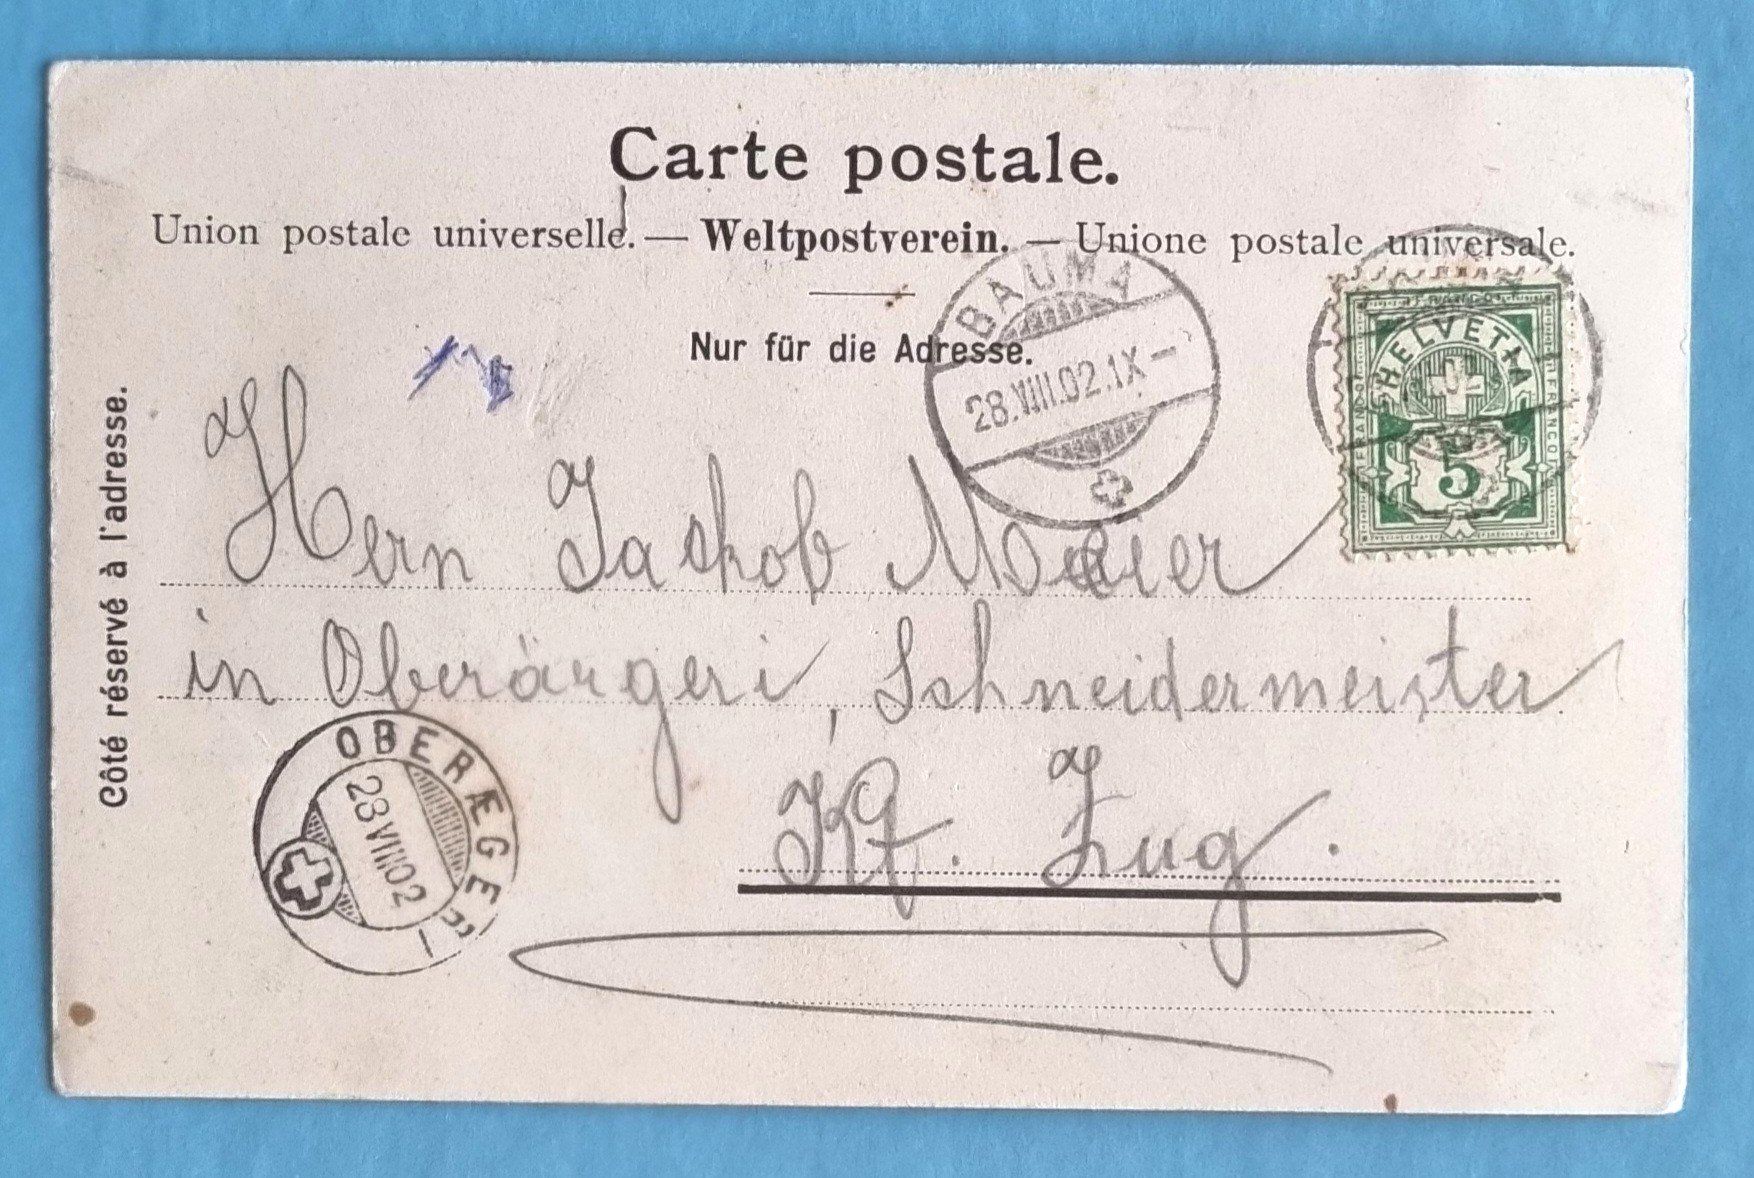 Carte postale.
Union postale universelle. — Weltpostverein. — Unione postale universale.
Nur für die Adresse.
Côté réservé à l'adresse.
BAUMA
28.VIII.02.IX–
HELVETIA
FRANCO
FRANCO
5
Hern Jackob Meier
in Oberäugeri, Schneidermeister
Kt. Zug.
OBERÆGERI
28 VIII 02